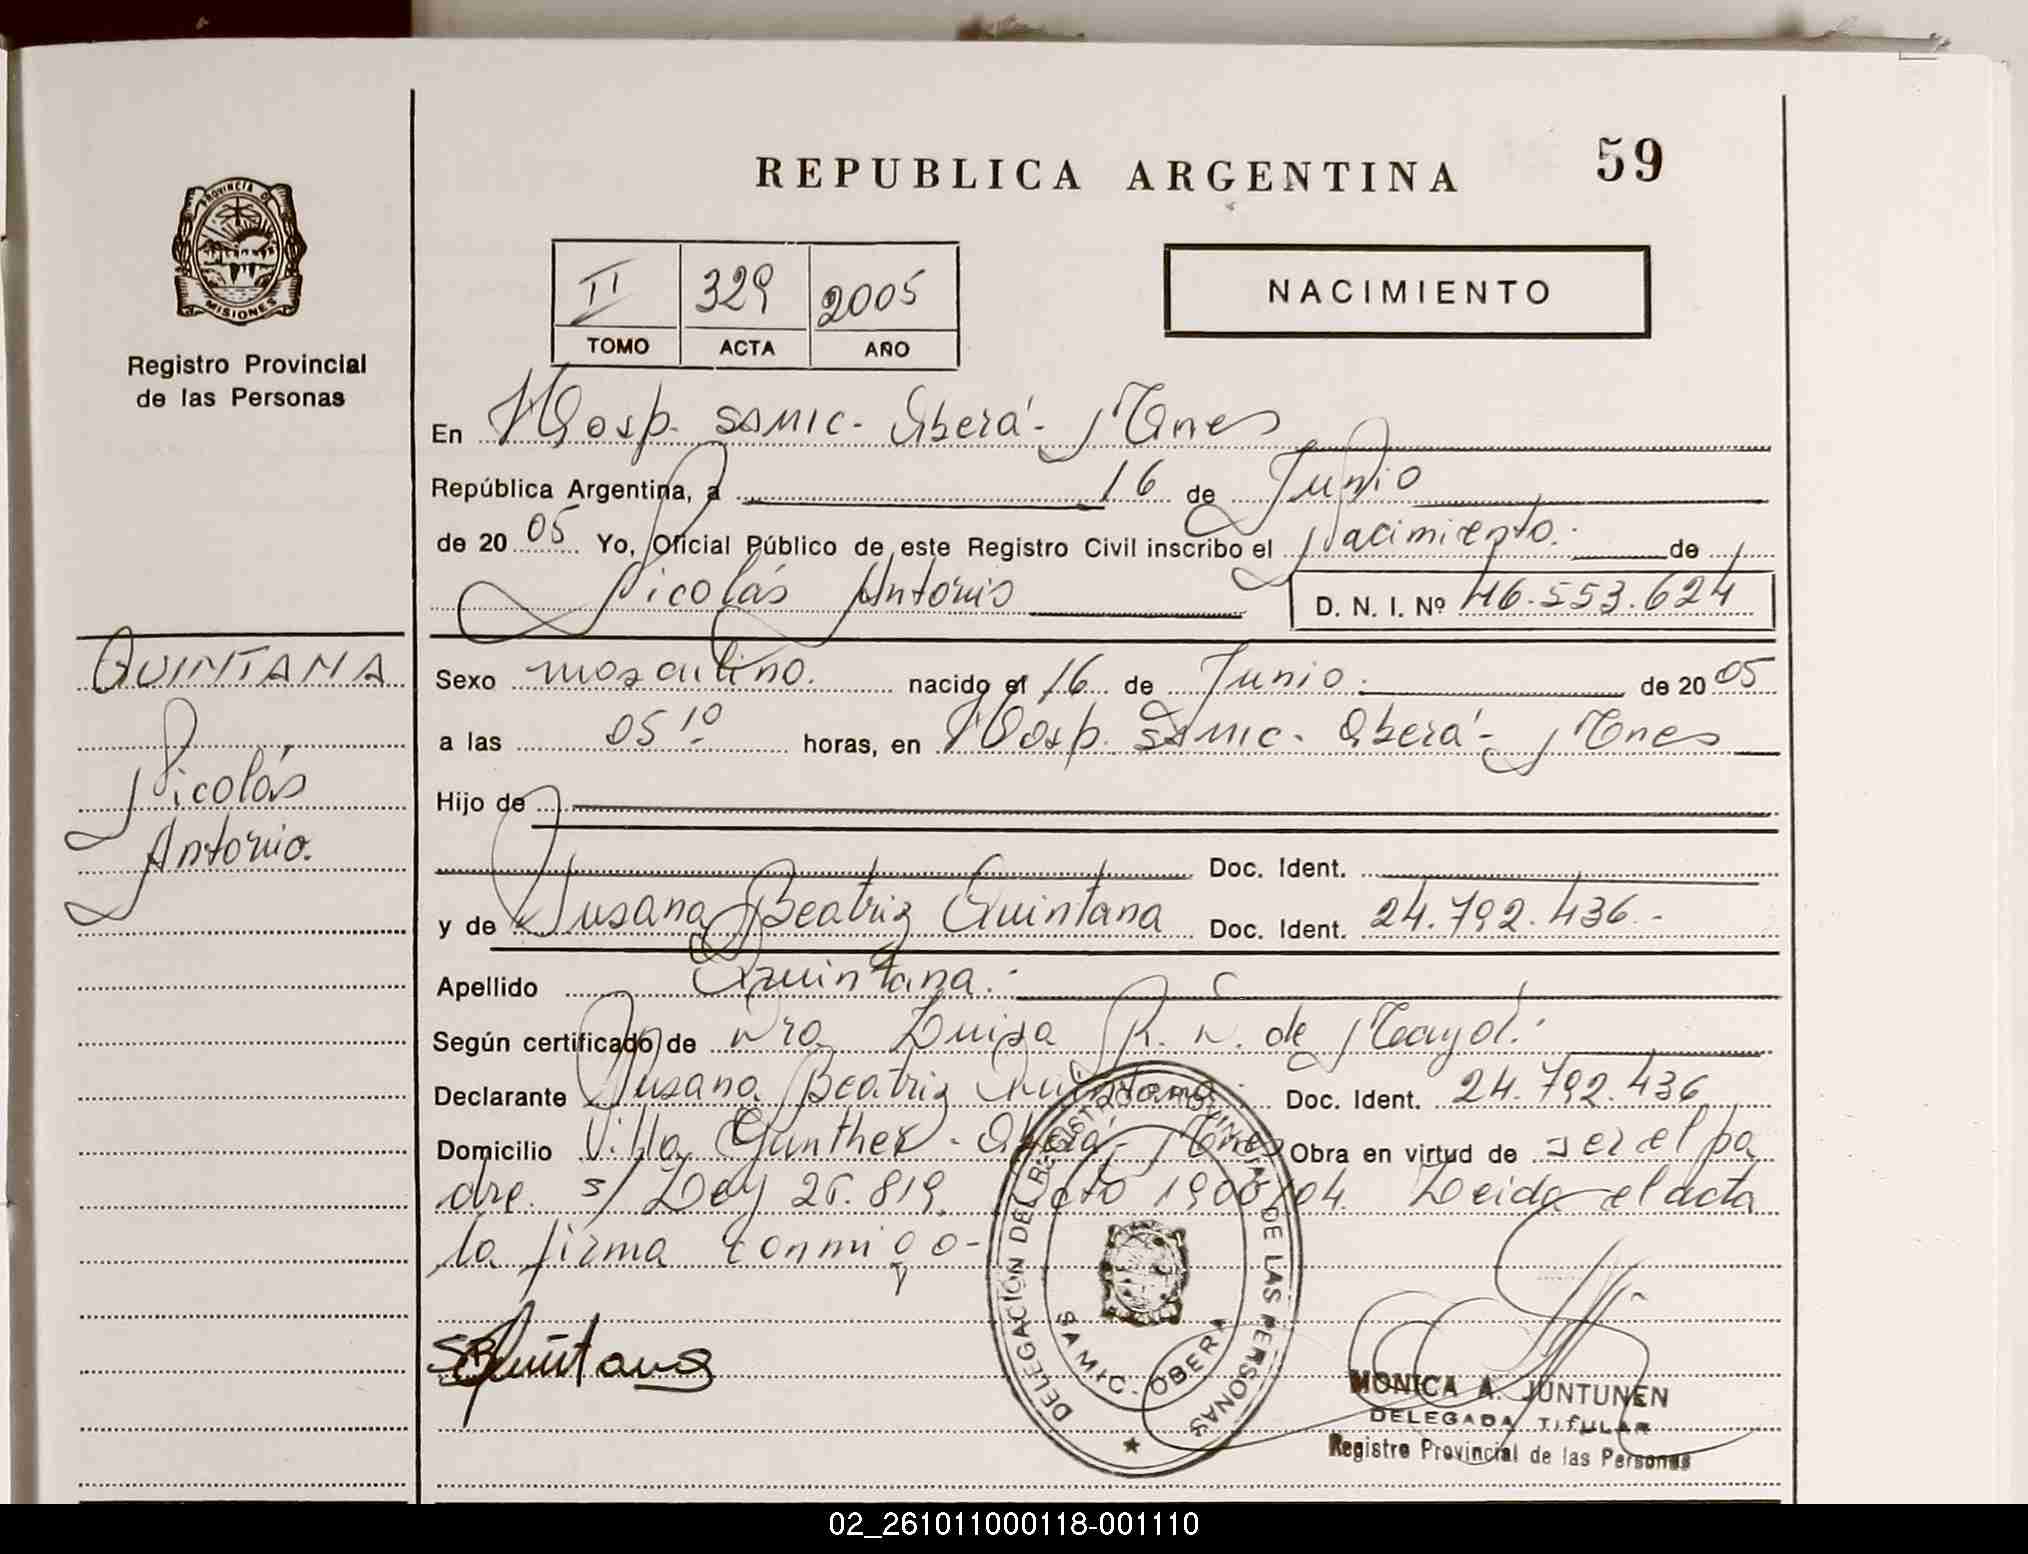 REPUBLICA ARGENTINA 59
PROVINCIA DE
MISIONES
Registro Provincial
de las Personas
II 329 2005
TOMO ACTA AÑO
NACIMIENTO
En Hosp. SAMIC - Oberá - Mnes
República Argentina, a 16 de Junio
de 20 05 Yo, Oficial Público de este Registro Civil inscribo el Nacimiento. de
Nicolás Antonio D. N. I. Nº 46.553.624
QUINTANA
Nicolás
Antonio.
Sexo masculino. nacido el 16 de Junio. de 20 05
a las 05 10 horas, en Hosp. SAMIC - Oberá - Mnes
Hijo de
Doc. Ident.
y de Susana Beatriz Quintana Doc. Ident. 24.792.436.-
Apellido Quintana.
Según certificado de Dra Luisa R. N. de Mayol.
Declarante Susana Beatriz Quintana Doc. Ident. 24.792.436
Domicilio Villa Gunther - Oberá - Mnes Obra en virtud de ser el pa
dre. s/ Ley 26.819. Dcto 1900/04. Leida el acta
la firma conmigo-
SBQuintana
DELEGACIÓN DEL REGISTRO PROVINCIAL DE LAS PERSONAS
SAMIC - OBERA
MONICA A. JUNTUNEN
DELEGADA TITULAR
Registro Provincial de las Personas
02_261011000118-001110